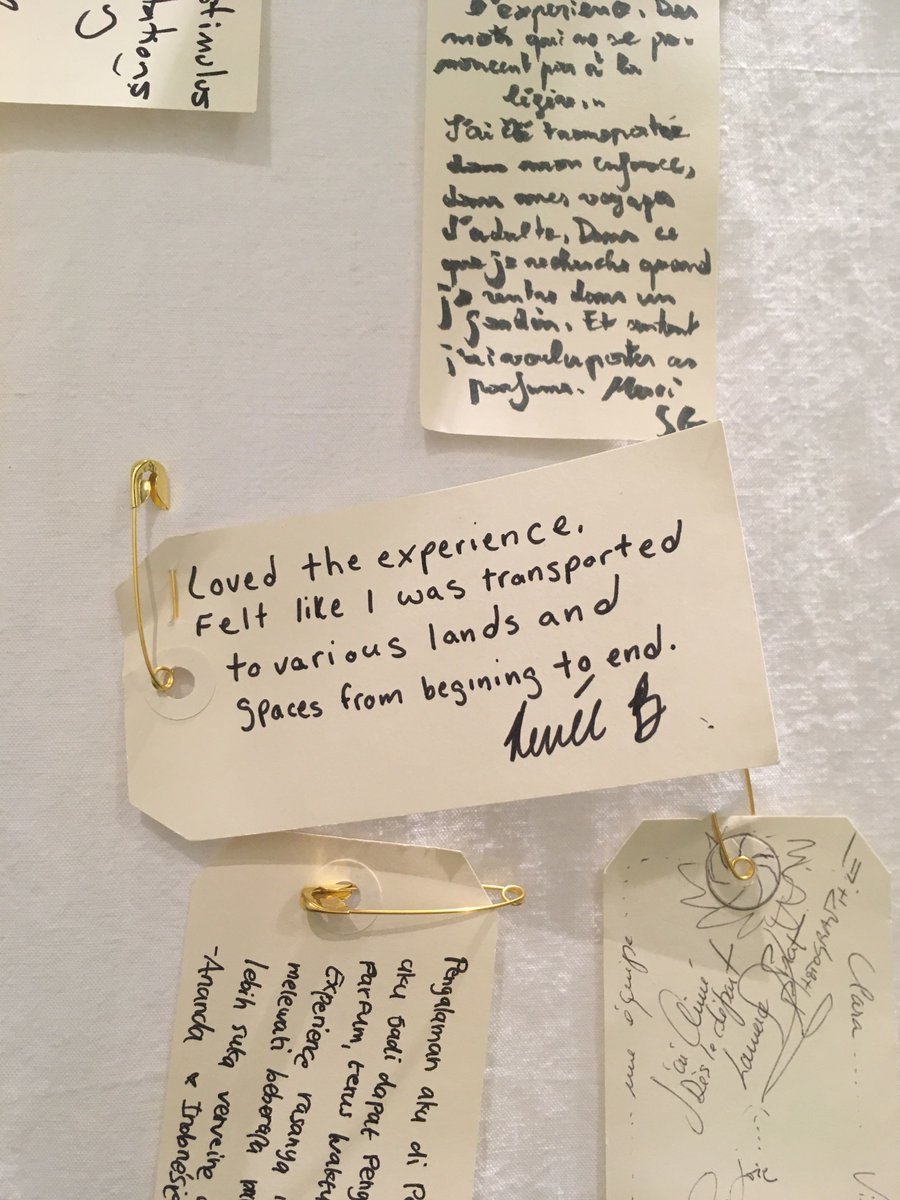 timulus
tations
d'experience. Des
mots qui ne se pro-
noncent pas à la
légère..
J'ai été transportée
dans mon enfance,
dans mes voyages
d'adulte. Dans ce
que je recherche quand
je rentre dans un
jardin. Et surtout
j'ai voulu porter ces
parfums. Merci
SG
Loved the experience.
Felt like I was transported
to various lands and
spaces from begining to end.
Pengalaman aku di Pa
aku jadi dapat Peng
Parfum, terus waktu
Experience rasanya
melewati beberapa m
lebih suka verveine
-Ananda & Indonesi
Clara
une équipe
J'ai aimé
Dès le départ